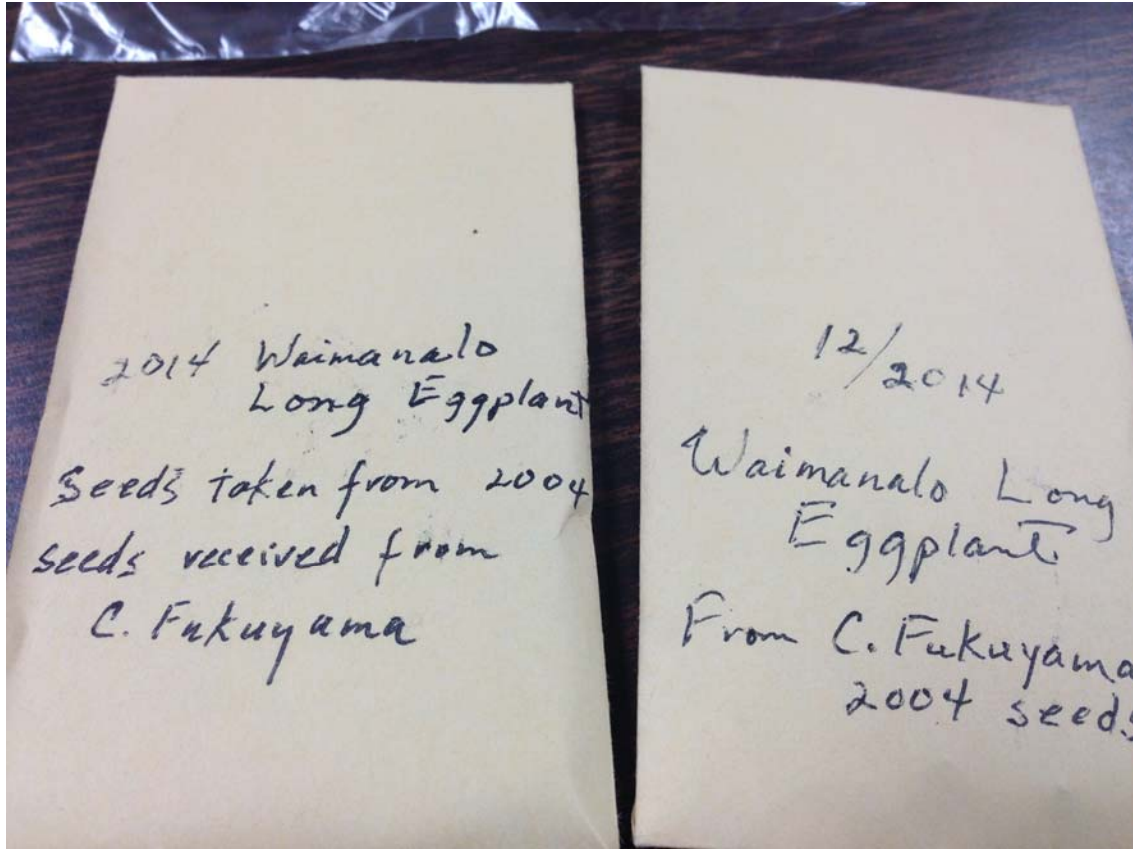 2014 Waimanalo
Long Eggplant
Seeds taken from 2004
seeds received from
C. Fukuyama
12/2014
Waimanalo Long
Eggplant
From C. Fukuyama
2004 seeds